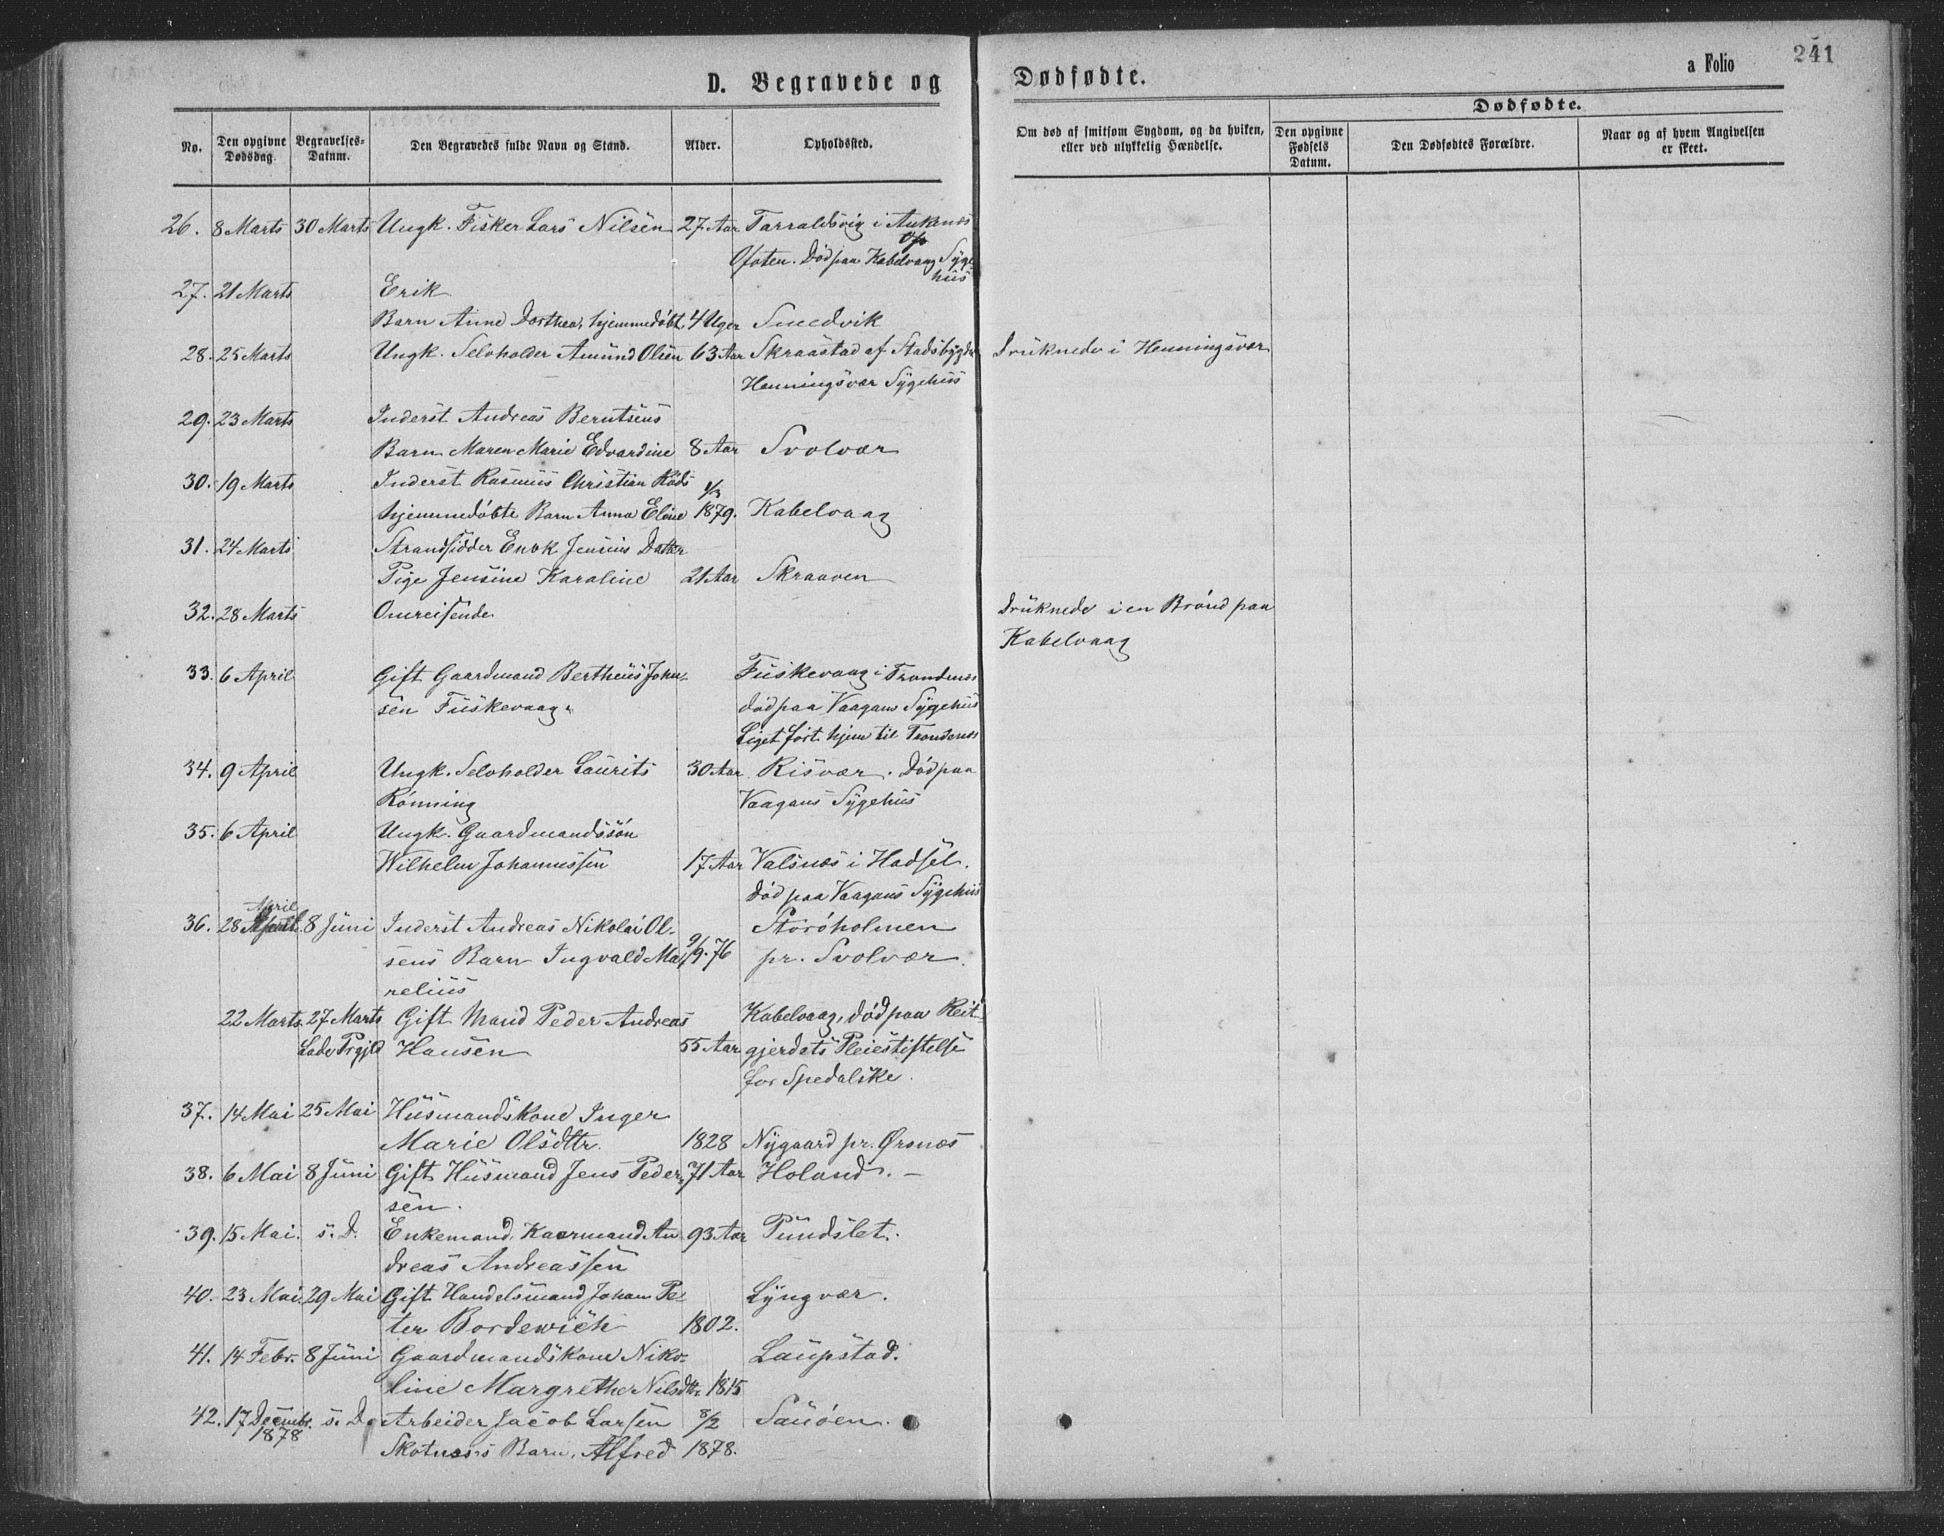 D. Begravede og Dødfødte.
a Folio 241
No.
Den opgivne Dødsdag.
Begravelses-Datum.
Den Begravedes fulde Navn og Stand.
Alder.
Opholdssted.
Om død af smitsom Sygdom, og da hvilken, eller ved ulykkelig Hændelse.
Dødfødte.
Den opgivne Fødsels Datum.
Den Dødfødtes Forældre.
Naar og af hvem Angivelsen er skeet.
26. 8 Marts 30 Marts Ungk. Fisker Lars Nilsen 27 Aar Tarraldsvig i Ankenæs
Ofoten. Død paa Kabelvaag Syge
hus
27. 21 Marts Erik
Barn Anne Dorthea, hjemmedøbt 4 Uger Smedvik
28. 25 Marts Ungk. Selvholder Amund Olsen 63 Aar Skraastad af Stadsbygden Druknede i Henningsvær
Henningsvær Sygehus
29. 23 Marts Inderst Andreas Berntsens
Barn Maren Marie Edvardine 8 Aar Svolvær
30. 19 Marts Inderst Rasmus Christian Røds 1/3
hjemmedøbte Barn Anna Eline 1879. Kabelvaag
31. 24 Marts Strandsidder Enok Jensens Datter
Pige Jensine Karoline 21 Aar Skraaven
32. 28 Marts Omreisende Druknede i en Brønd paa
Kabelvaag
33. 6 April Gift Gaardmand Bertheus John- Fuskevaag i Trondenæs
sen Fuskevaag. død paa Vaagans Sygehus
Liget ført hjem til Trondenæs
34. 9 April Ungk. Selvholder Laurits 30 Aar Risvær. Død paa
Rønning Vaagans Sygehus
35. 6 April Ungk. Gaardmandssøn
Wilhelm Johannessen 17 Aar Valsnæs i Hadsel.
død paa Vaagans Sygehus
April
36. 28 8 Juni Inderst Andreas Nikolai Ol- Storøholmen
sens Barn Ingvald Ma- 9/9.76 pr. Svolvær.
relius
22 Marts. 27 Marts Gift Mand Peder Andreas Kabelvaag, død paa Reit-
Lade Prgjld Hansen 55 Aar gjerdets Pleiestiftelse
for Spedalske.
37. 14 Mai 25 Mai Husmandskone Inger
Marie Olsdtr. 1828 Nygaard pr. Ørsnæs
38. 6 Mai 8 Juni Gift Husmand Jens Peder- 71 Aar Holand. -
sen.
39. 15 Mai. s. D. Enkemand, Kaarmand An 93 Aar Pundslet.
dreas Andreassen
40. 23 Mai. 29 Mai Gift Handelsmand Johan Pe- Lyngvær.
ter Bordewich 1802.
41. 14 Febr. 8 Juni Gaardmandskone Niko- Laupstad.
line Margrethe Nilsdtr. 1815
42. 17 Decembr. s. D. Arbeider Jacob Larsen 8/2 Sauøen.
1878 Skotnæs's Barn, Alfred 1878.